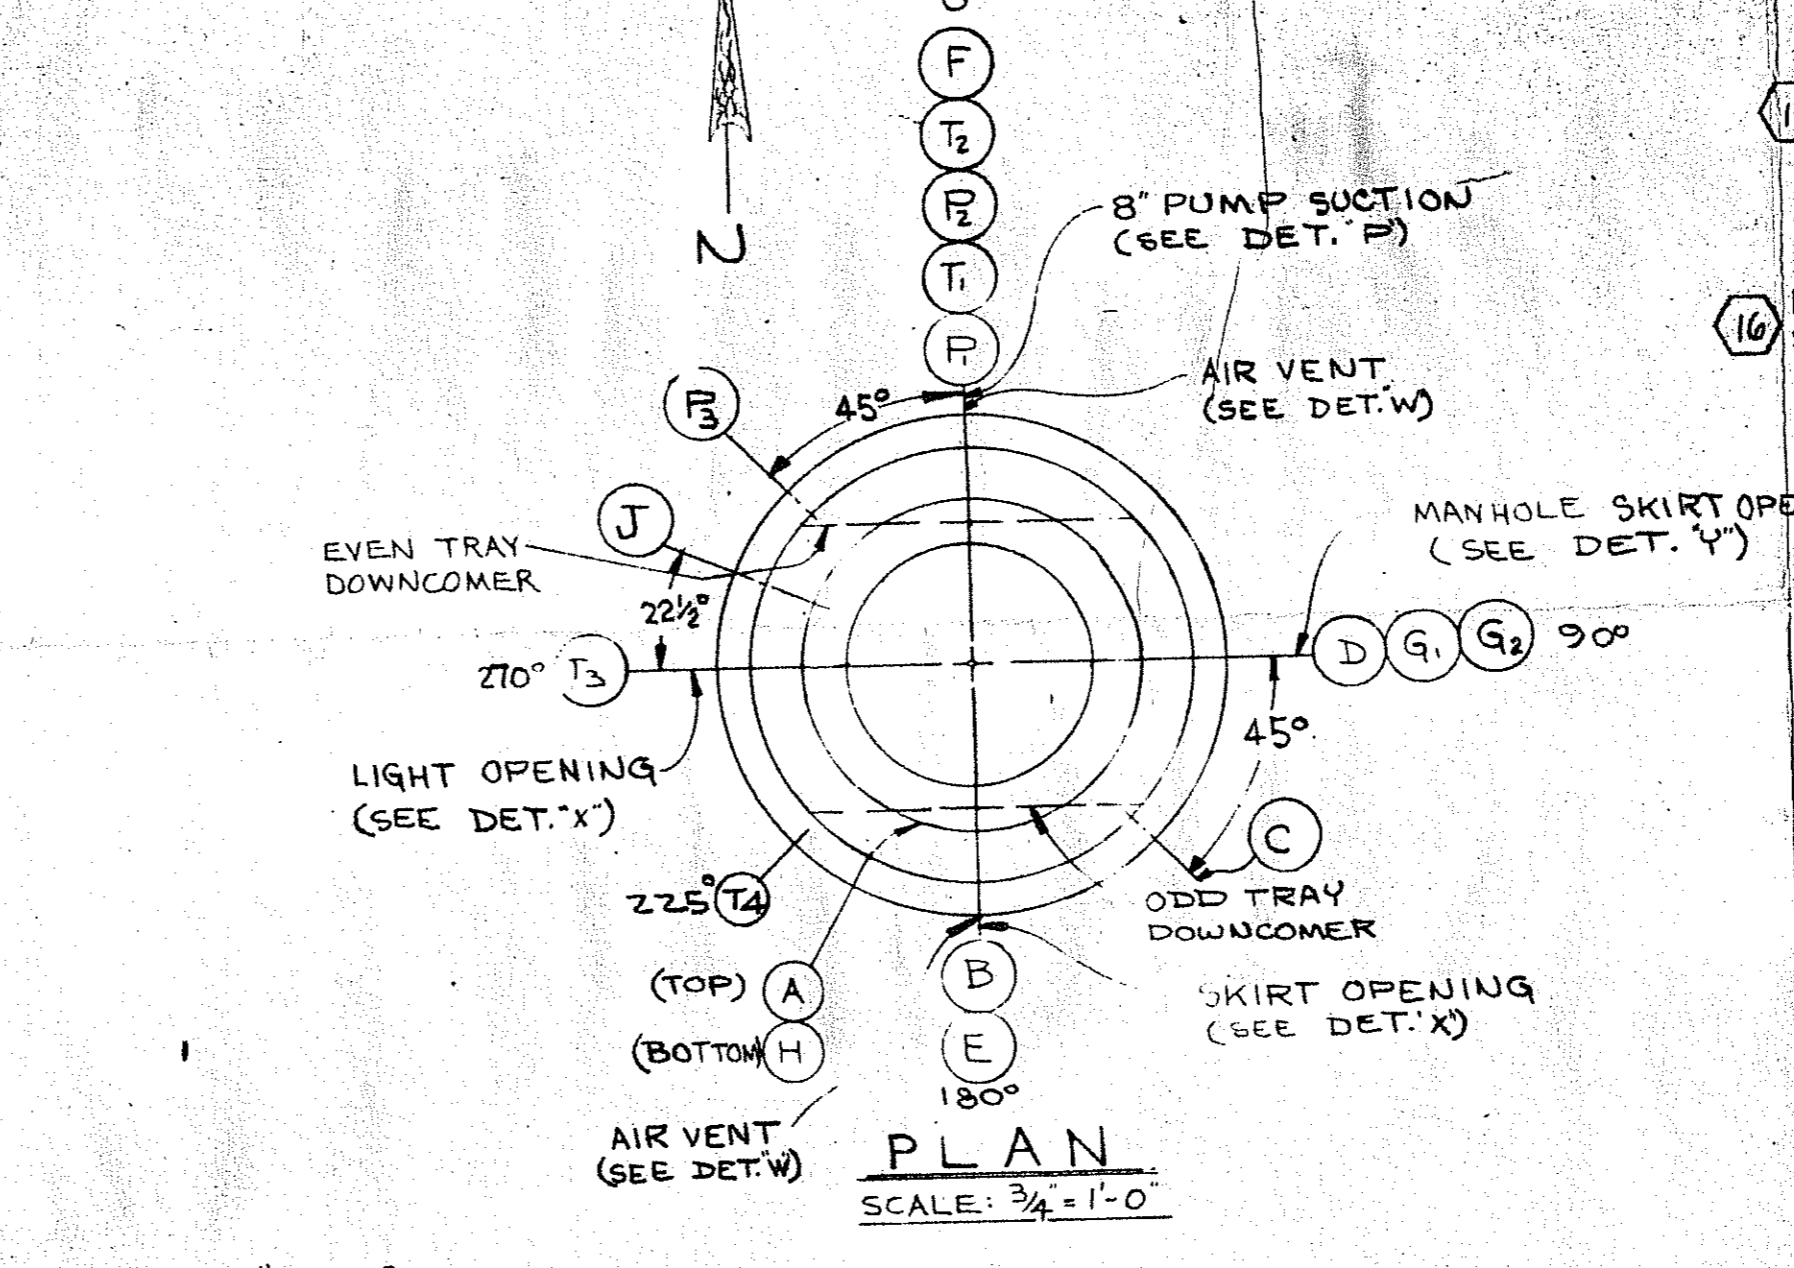 F
T2
P2
T1
P1
N
8" PUMP SUCTION
(SEE DET. "P")
16
AIR VENT
(SEE DET."W")
P3
45°
J
EVEN TRAY
DOWNCOMER
22½°
MANHOLE SKIRT OPE
(SEE DET. "Y")
270° T3
D G1 G2 90°
45°
LIGHT OPENING
(SEE DET. "X")
C
225° T4
ODD TRAY
DOWNCOMER
(TOP) A
(BOTTOM) H
B
E
180°
SKIRT OPENING
(SEE DET. "X")
AIR VENT
(SEE DET."W")
PLAN
SCALE: 3/4" = 1'-0"